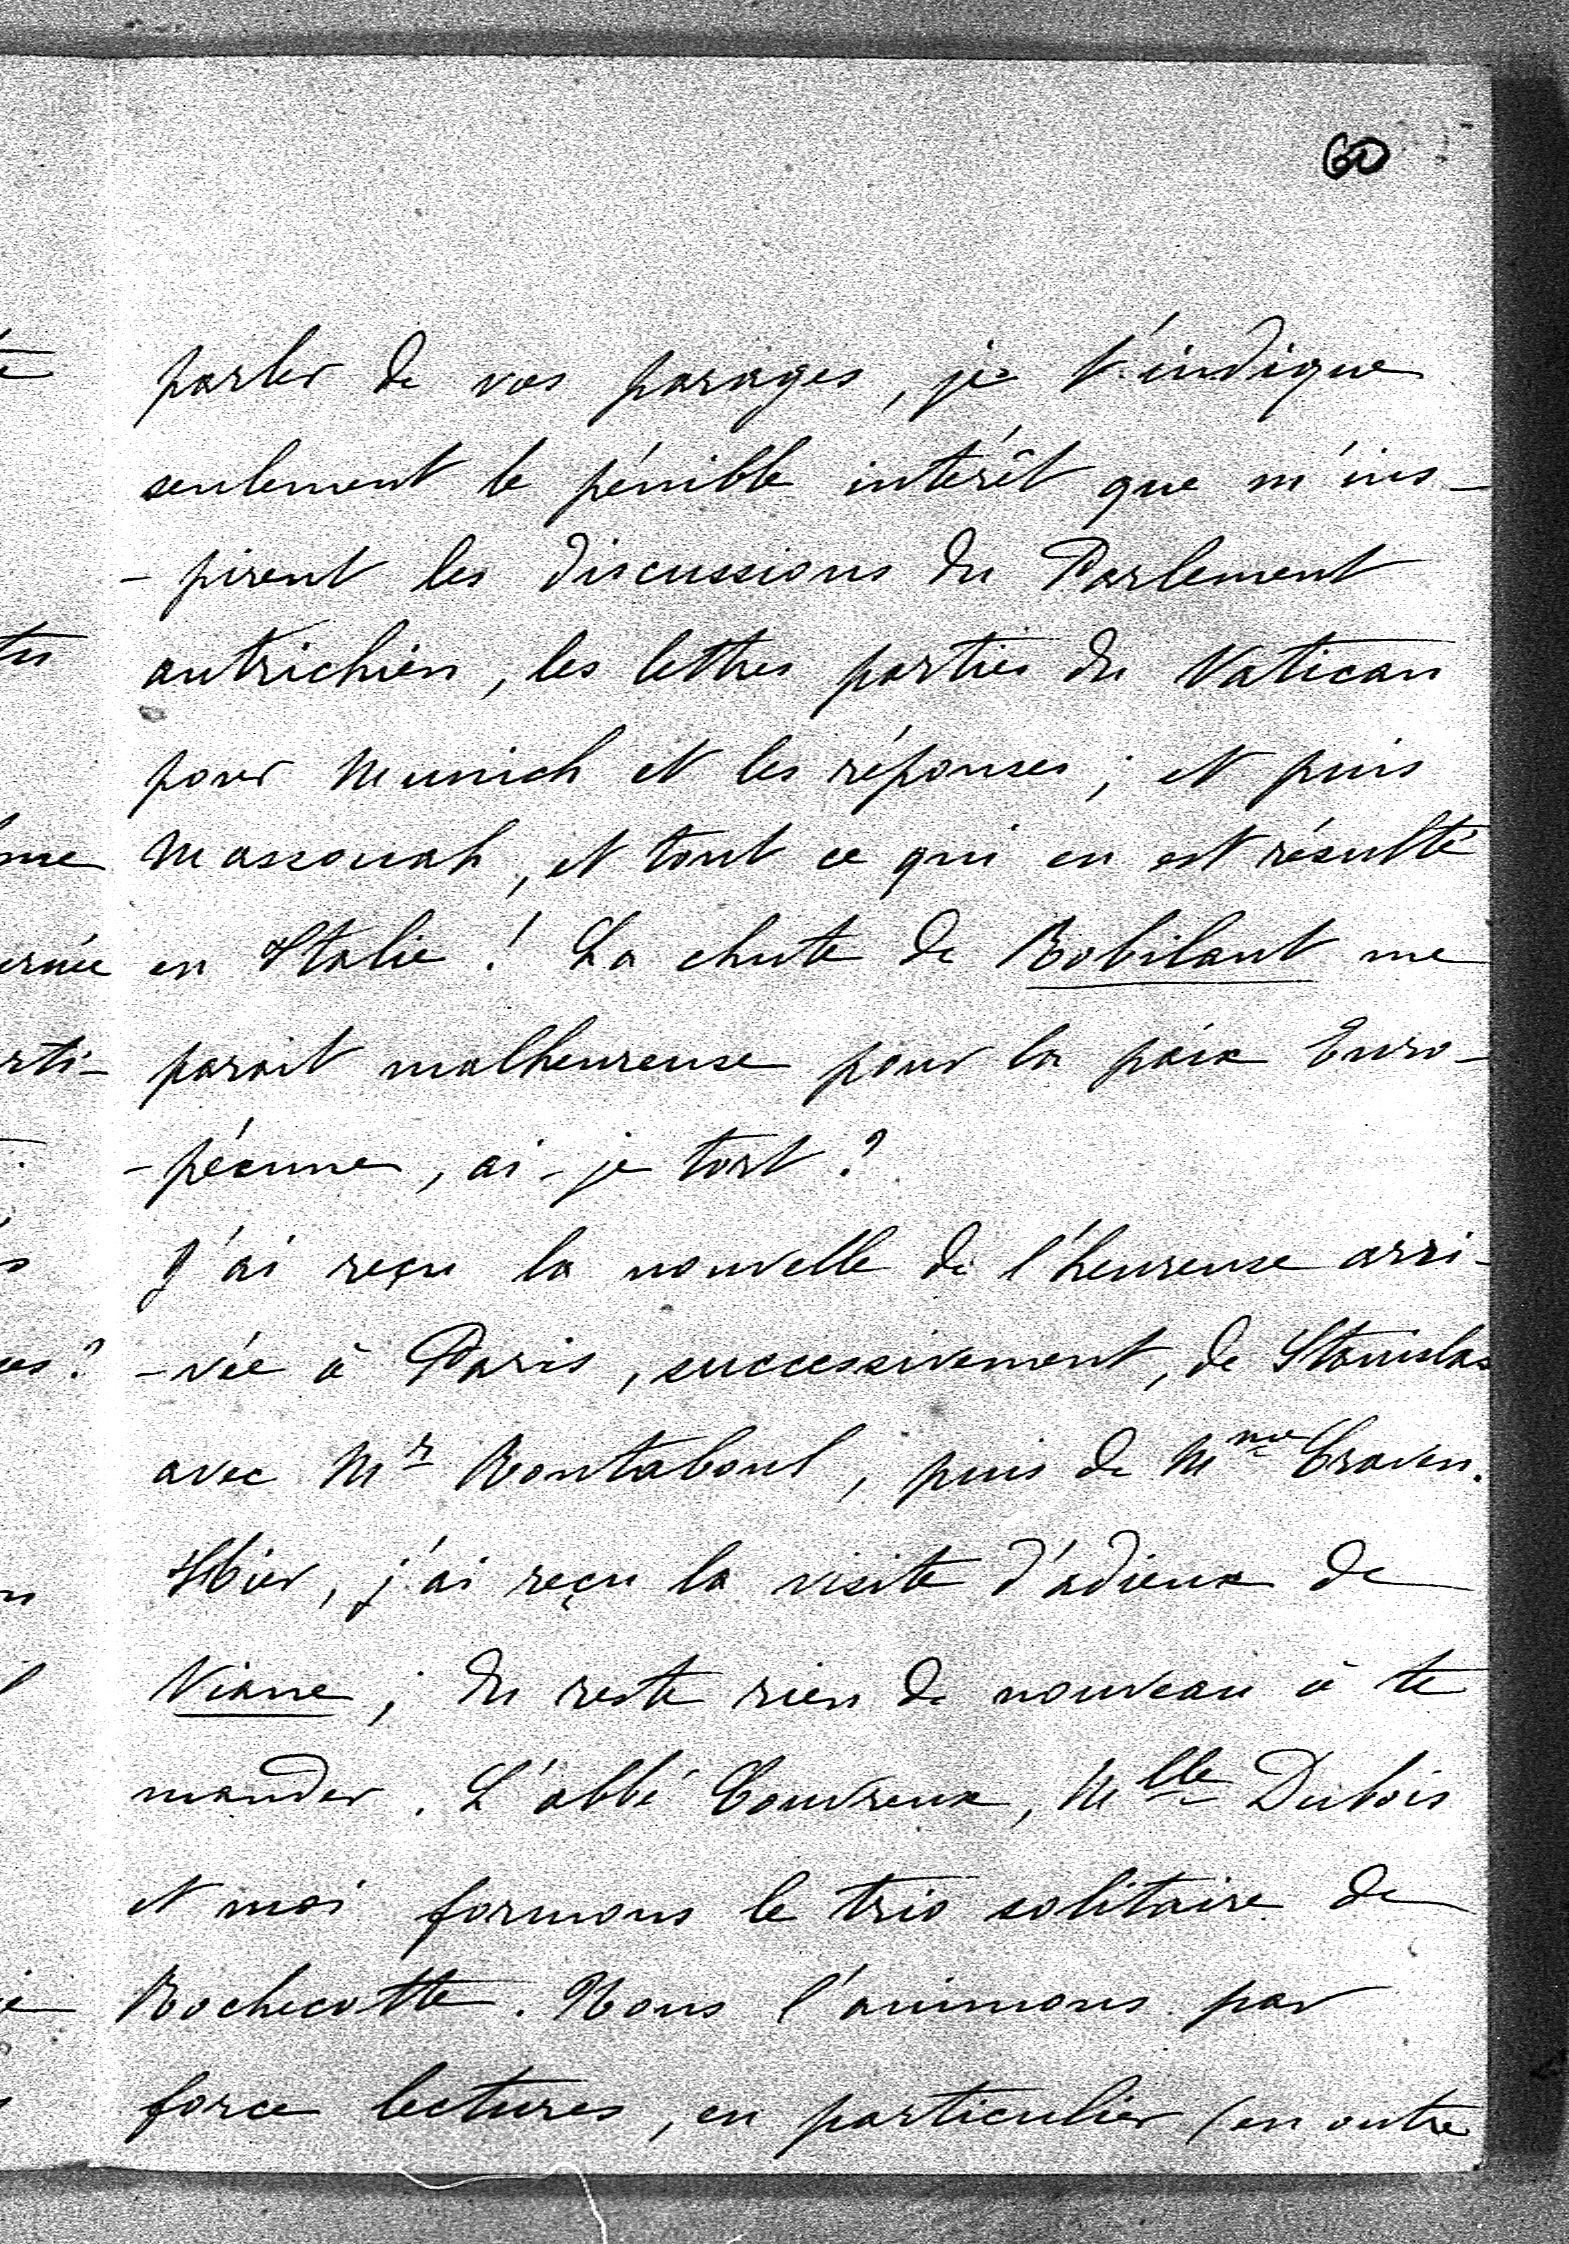 60
parler de vos parages, je t'indique
seulement le pénible intérêt que m'ins-
-pirent les discussions du Parlement
autrichien, les lettres parties du Vatican
pour Munich et les réponses ; et puis
Massouah, et tout ce qui en est résulté
en Italie ! La chute de Robilant me
parait malheureuse pour la paix Euro-
-péenne, ai-je tort ?
J'ai reçu la nouvelle de l'heureuse arri-
-vée à Paris, successivement, de Stanislas
avec Mr Rontaboul, puis de Mme Craven.
Hier, j'ai reçu la visite d'adieux de
Viane ; du reste rien de nouveau à te
mander. L'abbé Couvreux, Mlle Dubois
et moi formons le trio solitaire de
Rochecotte. Nous l'animons par
force lectures, en particulier (en outre